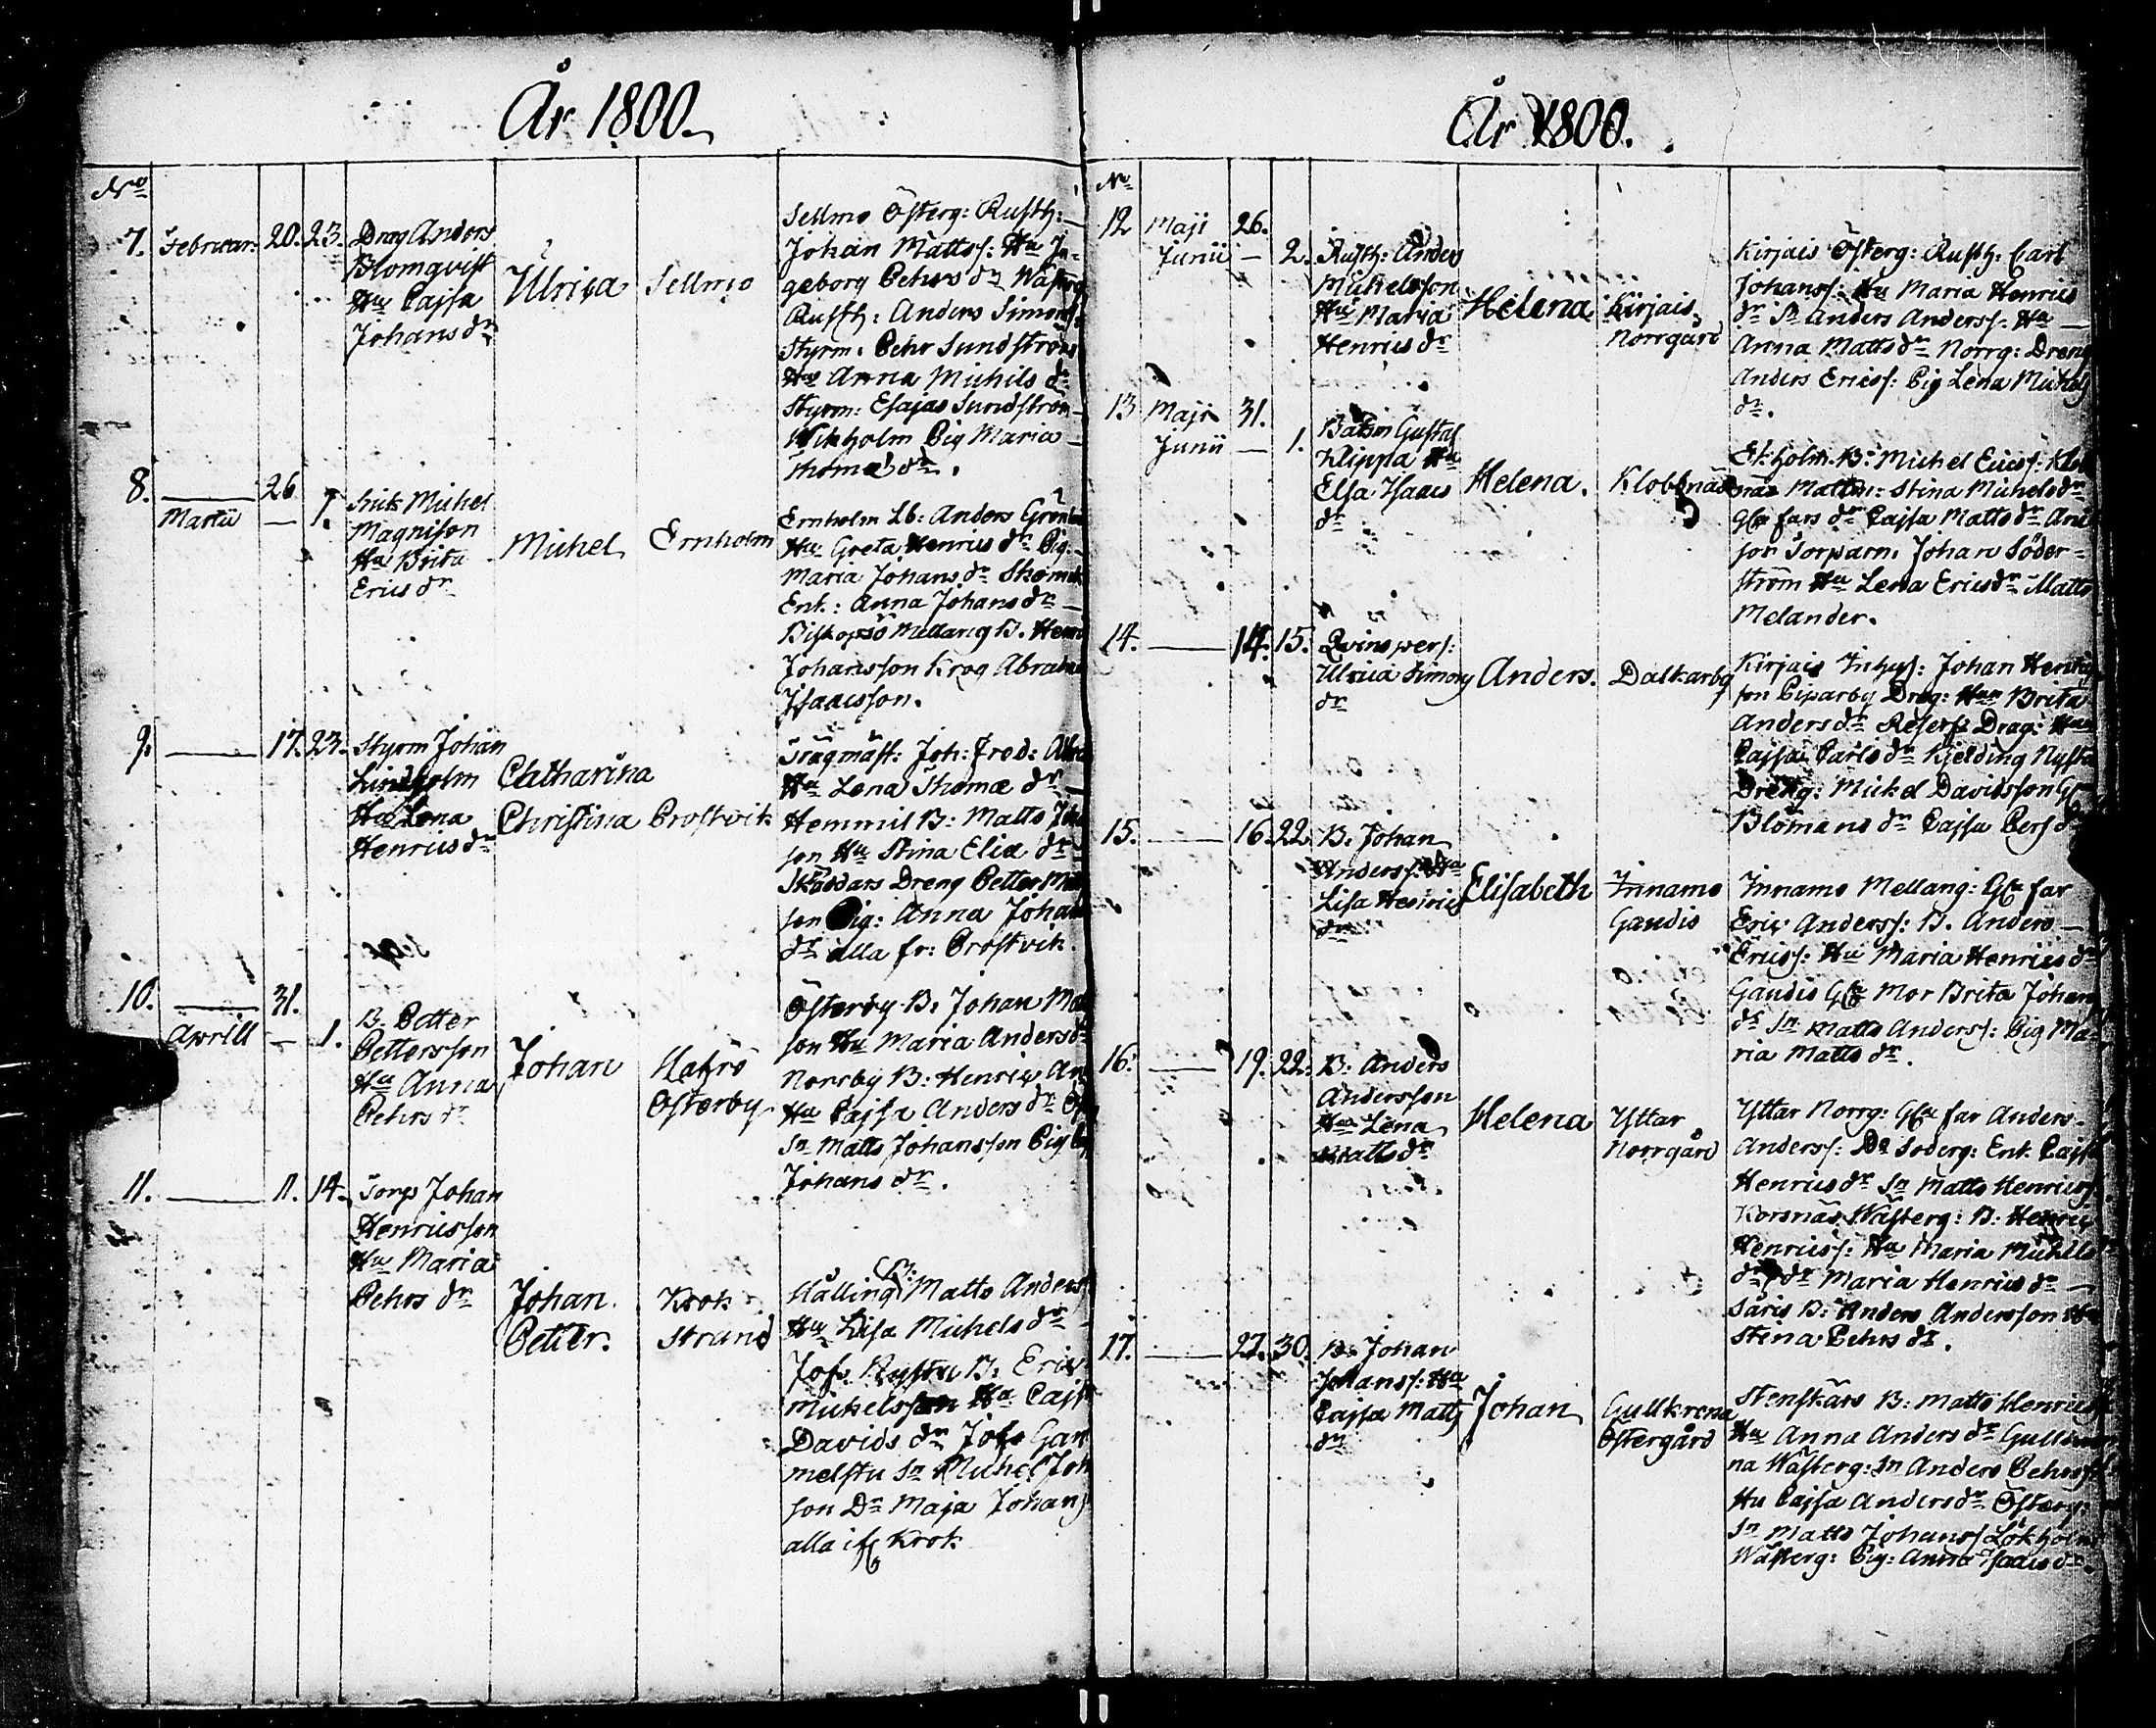 År 1800.
No
7. Februar: 20. 23. Drag Anders
Blomqvist
Hu Cajsa
Johans dr
Ulrica Sellmo
Sellmo Österg: Rusth:
Johan Mattss: Hu In-
geborg Pehrs dr Wästerg
Rusth: Anders Simons
Styrm: Pehr Sundström
Hu Anna Michils dr
Styrm: Esajas Sundström
Wikholm Pig Maria
Thomæ dr.
8. — 26
Martii — 1. Michel
Magnisson
Hu Brita
Erics dr
Michel Ernholm
Ernholm Lb: Anders
Hu Greta Henrics dr Pig.
Maria Johans dr
Enk: Anna Johans dr
Biskopsö Mellang B. Henr
Johansson Krog Abraham
Isaacsson.
9. — 17. 23. Styrm Johan
Lindholm
Hu Lena
Henrics dr
Catharina
Christina Prostvik
Joh: Fred:
Hu Lena Thomæ dr
Hemmil B: Matts Joh
son Hu Stina Eliæ dr
Skräddars Dreng Petter Mat
son Pig: Anna Johan
dr alla fr: Prostvik.
10. — 31.
Aprill — 1. B. Petter
Pettersson
Hu Anna
Pehrs dr
Johan Haverö
Österby
Österby B: Johan Mat
son Hu Maria Anders dr
Norrby B: Henric An
Hu Cajsa Anders dr
Sn Matts Johansson Pig
Johans dr.
11. — 11. 14. Torp Johan
Henricsson
Hu Maria
Pehrs dr
Johan
Petter.
Krok
Strand
Hälling B: Matts Anders
Hu Lisa Michels dr
Nystu B. Eric
Michelsson Hu Cajs
Davids dr Gam
melstu Sn Michel Joh
son Dr Maja Johans
alla ifr Krok
År 1800.
No
12 Maji 26.
Junii — 2. Rusth: Anders
Michelsson
Hu Maria
Henrics dr
Helena Kirjais
Norrgård
Kirjais Österg: Rusth: Carl
Johanss: Hu Maria Henrics
dr Sn Anders Anderss: Hu
Anna Matts dr Norrg: Dreng
Anders Ericss: Pig Lena Michels
dr.
13 Maji 31.
Junii — 1. Båtsm Gustaf
Klippa Hu
Elsa Isaacs
dr
Helena. Klobbnäs
Ekholm B: Michel Ericss: Klob
näs Stina Michels dr
fars dr Cajsa Matts dr
son Torparn. Johan Söder-
ström Hu Lena Erics dr Matts
Melander.
14. — 14. 15. Qvinspers:
Ulrica Simons
dr
Anders. Dalkarby
Kirjais Inhys: Johan Henrics
son Piparby Drag: Hu Brita
Anders dr Drag: Hu
Cajsa Carls dr Kjelding Nystu
Dreng: Mickel Davidsson
Blomans dr Cajsa Pers dr
15. — 16. 22. B. Johan
Anderss: Hu
Lisa Henrics
dr
Elisabeth Innamo
Gaudis
Innamo Mellang: far
Eric Anderss: B. Anders
Ericss: Hu Maria Henrics dr
Gaudis Mor Brita Johans
dr Sn Matts Anderss: Pig Ma-
ria Matts dr.
16. — 19. 22. B. Anders
Andersson
Hu Lena
Matts dr
Helena Yttar
Norrgård
Yttar Norrg: far Anders
Anderss: Dr Soderg: Enk Cajsa
Henrics dr Sn Matts Henricss
Korsnäs Wästerg: B: Henric
Henricss: Hu Maria Michils
dr Maria Henrics dr
Säris B: Anders Andersson Hu
Stina Pehrs dr.
17. — 27. 30. B. Johan
Johanss: Hu
Cajsa Matts
dr
Johan Gullkrona
Östergård
Stenskärs B: Matts Henrics
Hu Anna Anders dr Gullkro
na Wästerg: Sn Anders Pehrss
Hu Cajsa Anders dr Österg:
Sn Matts Johanss Lökholm
Wästerg: Pig: Anna Isaacs dr.